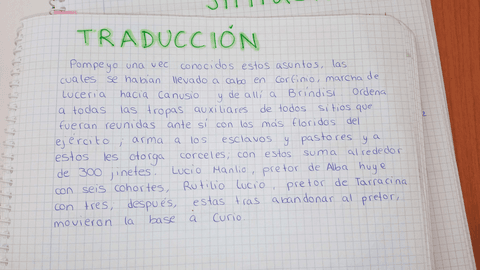 TRADUCCIÓN
Pompeyo una vec conocidos estos asuntos, las
cuales se habían llevado a cabo en Corfinio, marcha de
Luceria hacia Canusio y de allí a Brindisi. Ordena
a todas las tropas auxiliares de todos sitios que
fueran reunidas ante sí con los más floridos del
ejército; arma a los esclavos y pastores y a
estos les otorga corceles, con estos suma alrededor
de 300 jinetes. Lucio Manlio, pretor de Alba huye
con seis cohortes, Rutilio Lucio, pretor de Tarracina
con tres, después, estas tras abandonar al pretor,
movieron la base a Curio